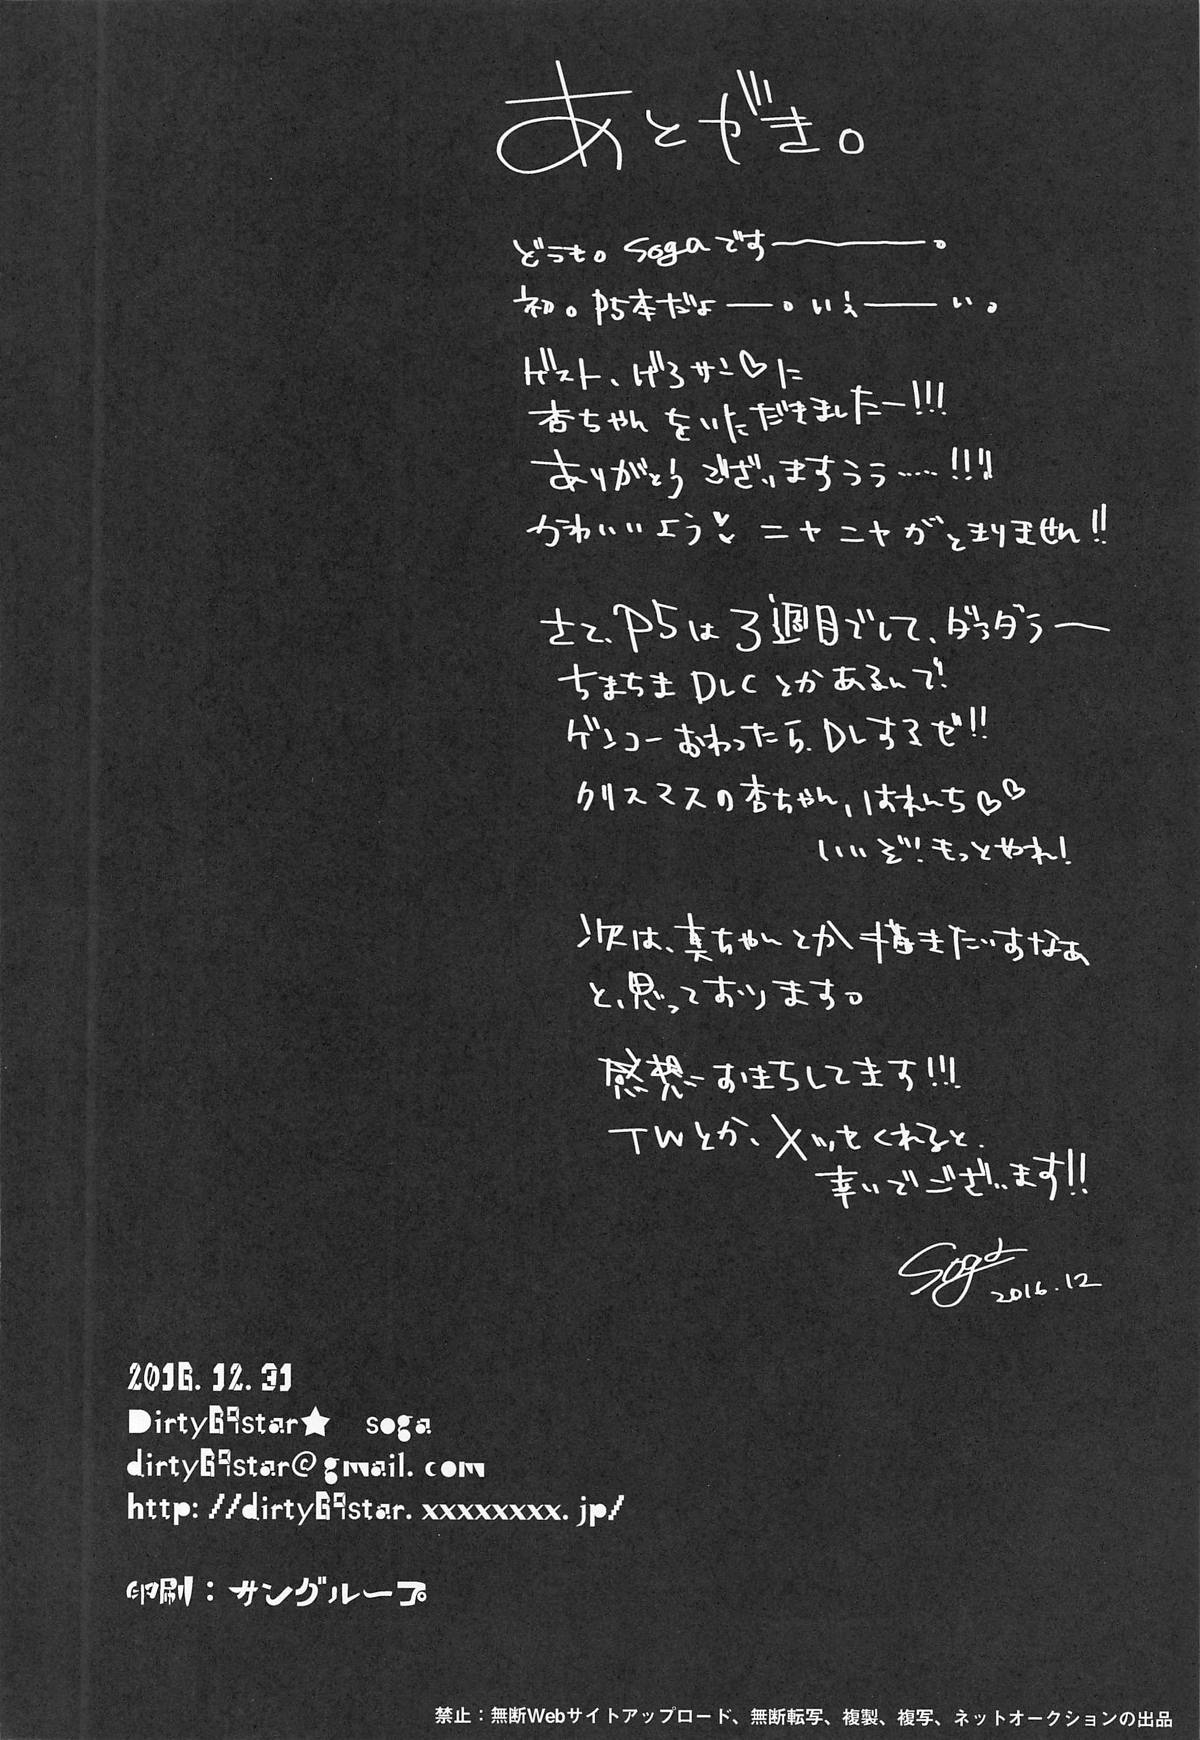 あとがき。
どうも。sogaです―――。
初。P5本だよ――。いぇ――い。
ゲスト、げろサン♡に
杏ちゃんをいただきましたー!!!
ありがとうございますうぅ……!!!
かわいいよう♥ ニヤニヤがとまりません!!
さて、P5は3週目でして、ダラダラ―
ちまちまDLCとかあるんで!
ゲンコーおわったら、DLするぜ!!
クリスマスの杏ちゃん、はれんち♡♡
いいぞ!もっとやれ!
次は、真ちゃんとか描きたいすなぁ
と、思っております。
感想おまちしてます!!!
TWとか、メッセくれると、
幸いでございます!!
Soga
2016.12
2016.12.31
Dirty69star★ soga
dirty69star@gmail.com
http://dirty69star.xxxxxxxx.jp/
印刷：サングループ
禁止：無断Webサイトアップロード、無断転写、複製、複写、ネットオークションの出品